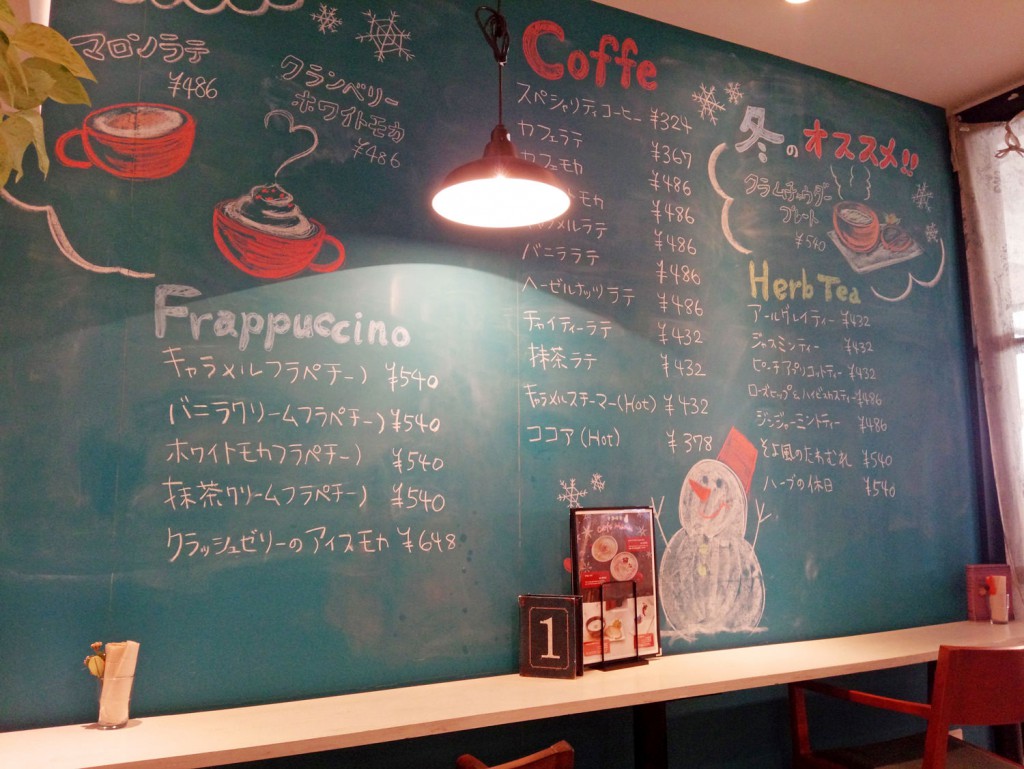 マロンラテ
¥486
クランベリー
ホワイトモカ
¥486
Frappuccino
キャラメルフラペチーノ ¥540
バニラクリームフラペチーノ ¥540
ホワイトモカフラペチーノ ¥540
抹茶クリームフラペチーノ ¥540
クラッシュゼリーのアイスモカ ¥648
Coffe
スペシャリティコーヒー ¥324
カフェラテ ¥367
カフェモカ ¥486
モカ ¥486
キャラメルラテ ¥486
バニララテ ¥486
ヘーゼルナッツラテ ¥486
チャイティーラテ ¥432
抹茶ラテ ¥432
キャラメルスチーマー(Hot) ¥432
ココア(Hot) ¥378
冬のオススメ!!
クラムチャウダー
プレート
¥540
Herb Tea
アールグレイティー ¥432
ジャスミンティー ¥432
ピーチアプリコットティー ¥432
ローズヒップ&ハイビスカスティー ¥486
ジンジャーミントティー ¥486
そよ風のたわむれ ¥540
ハーブの休日 ¥540
1